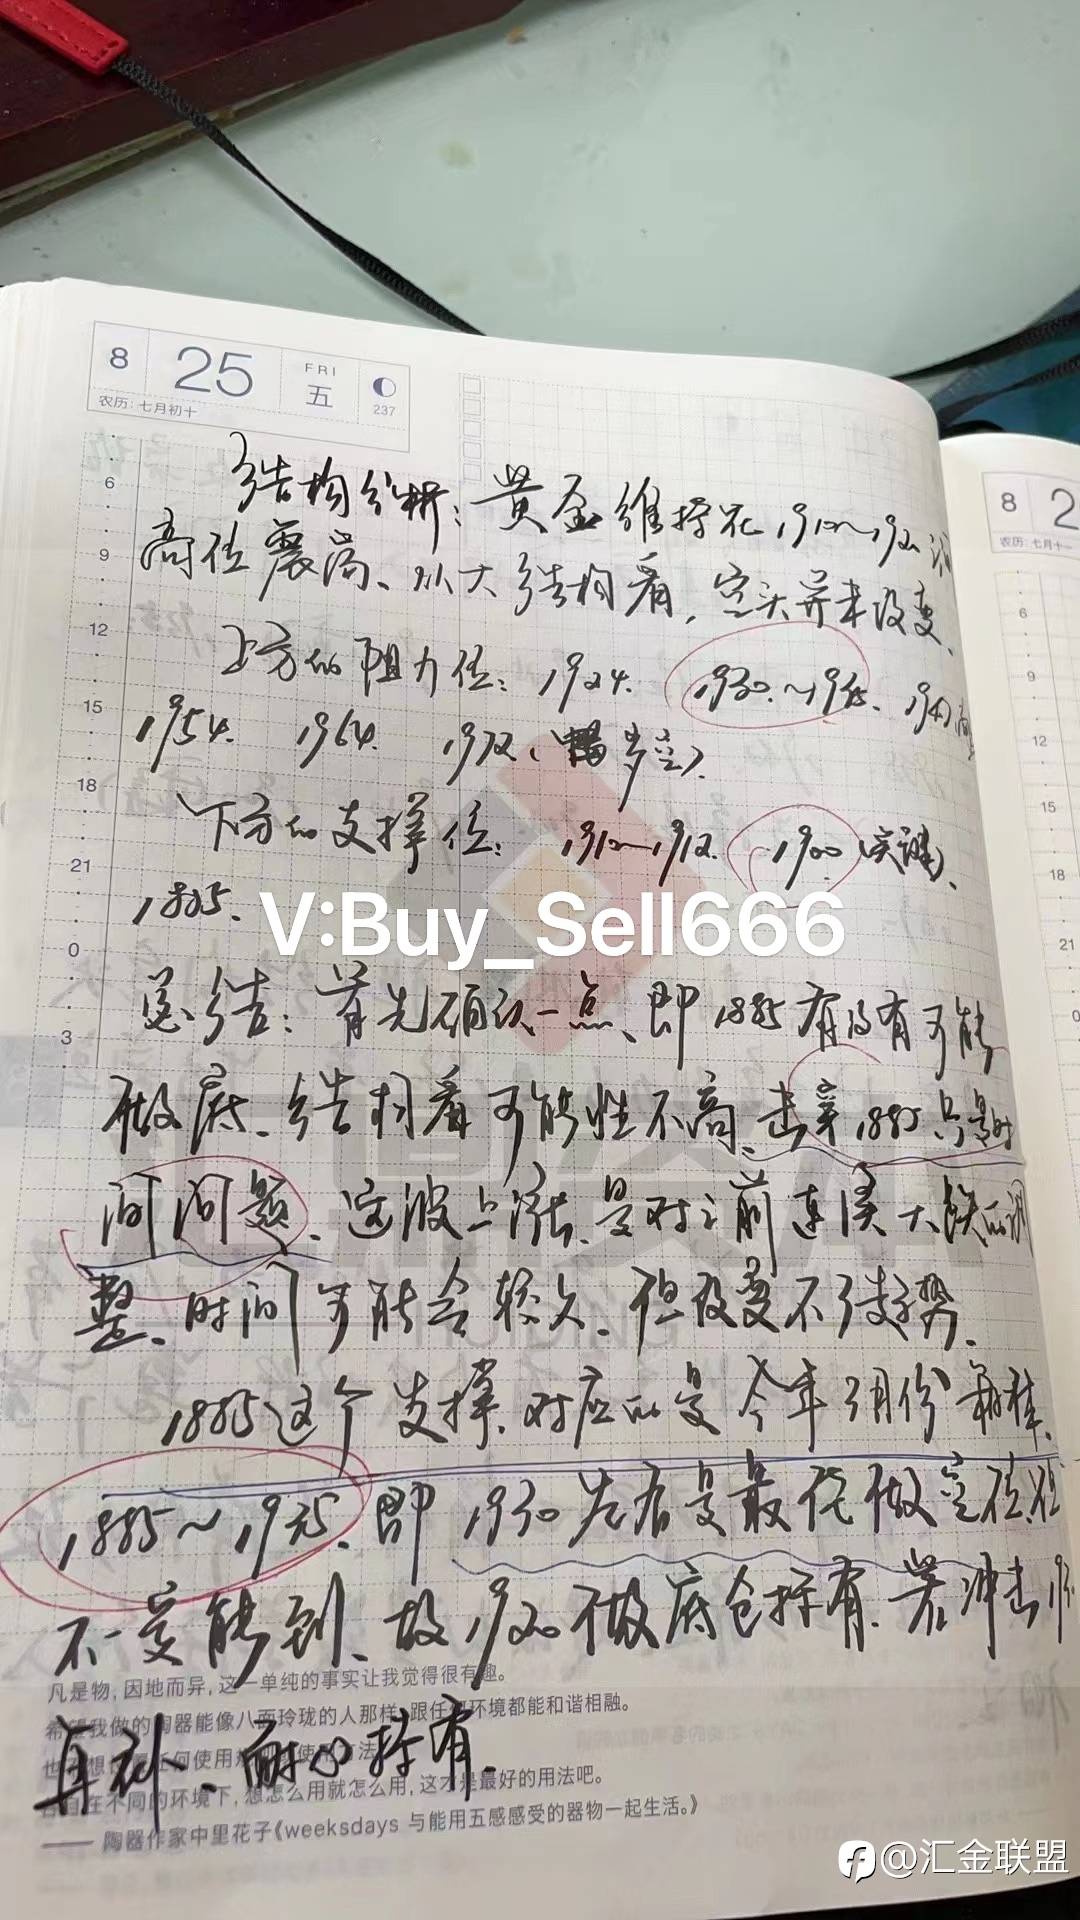 8 25 FRI 五 237
农历:七月初十
8 2
农历:七月十一
6
9
12
15
18
21
0
3
6
9
12
15
18
21
结构分析：黄金维持在1910~192
高位震荡、从大结构看,空头并未改变、
上方的阻力位：1924. 1930.~1935. 194
1954. 1964. 1972、
下方的支撑位：1910~1912. 1900（关键）、
1885.
V:Buy_Sell666
总结：首先确认一点、即1885有没有可能
做底、结构看可能性不高、击穿1885只是时
间问题、这波上涨、是对之前连续大跌的调
整、时间可能会较久、但改变不了趋势、
1885这个支撑、对应的是今年3月份
1885~1935、即1930左右是最佳做空位、但
不一定能到、故1920做底仓持有、若冲击
再补、耐心持有、
凡是物,因地而异,这一单纯的事实让我觉得很有趣。
希望我做的陶器能像八面玲珑的人那样,跟任何环境都能和谐相融。
在不同的环境下,想怎么用就怎么用,这才是最好的用法吧。
—— 陶器作家中里花子《weeksdays 与能用五感感受的器物一起生活。》
@汇金联盟